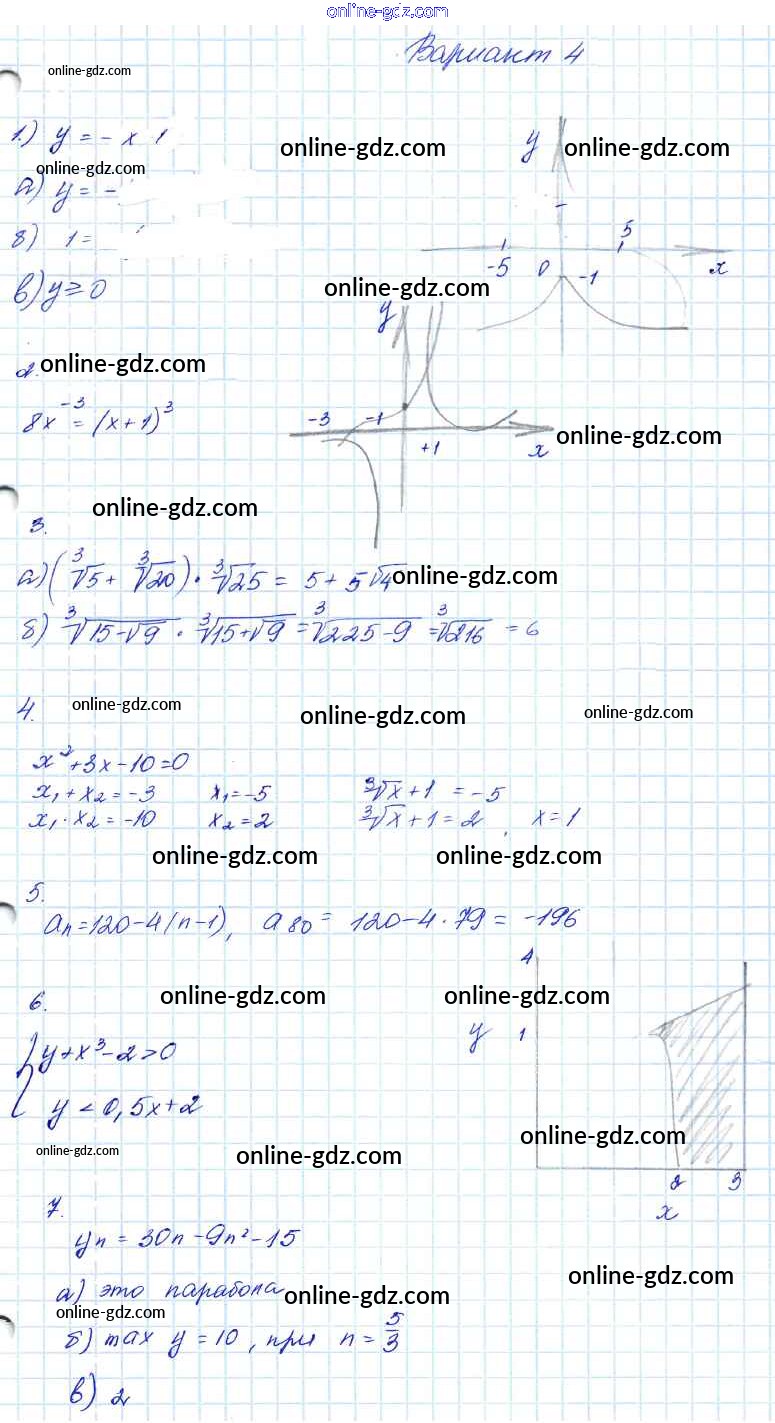 online-gdz.com
Вариант 4
online-gdz.com
1.) y = - x 1
online-gdz.com
y
online-gdz.com
online-gdz.com
а) y = -
5
б) 1 =
-5 0 -1 x
в) y ≥ 0
online-gdz.com
y
2.
online-gdz.com
8x⁻³ = (x+1)³
-3 -1
+1 x
online-gdz.com
online-gdz.com
3.
а) (∛5 + ∛20) · ∛25 = 5 + 5∛4
online-gdz.com
б) ∛15-√9 · ∛15+√9 = ∛225-9 = ∛216 = 6
4.
online-gdz.com
online-gdz.com
online-gdz.com
x²+3x-10=0
x₁+x₂=-3 x₁=-5 ∛x+1 = -5
x₁·x₂=-10 x₂=2 ∛x+1=2, x=1
online-gdz.com
online-gdz.com
5.
aₙ=120-4(n-1), a₈₀= 120-4·79= -196
4
6.
online-gdz.com
online-gdz.com
y 1
y+x³-2>0
y<0,5x+2
online-gdz.com
online-gdz.com
online-gdz.com
2 3
x
7.
yₙ = 30n-9n²-15
online-gdz.com
а) это парабола
online-gdz.com
online-gdz.com
б) max y=10, при n=5/3
в) 2